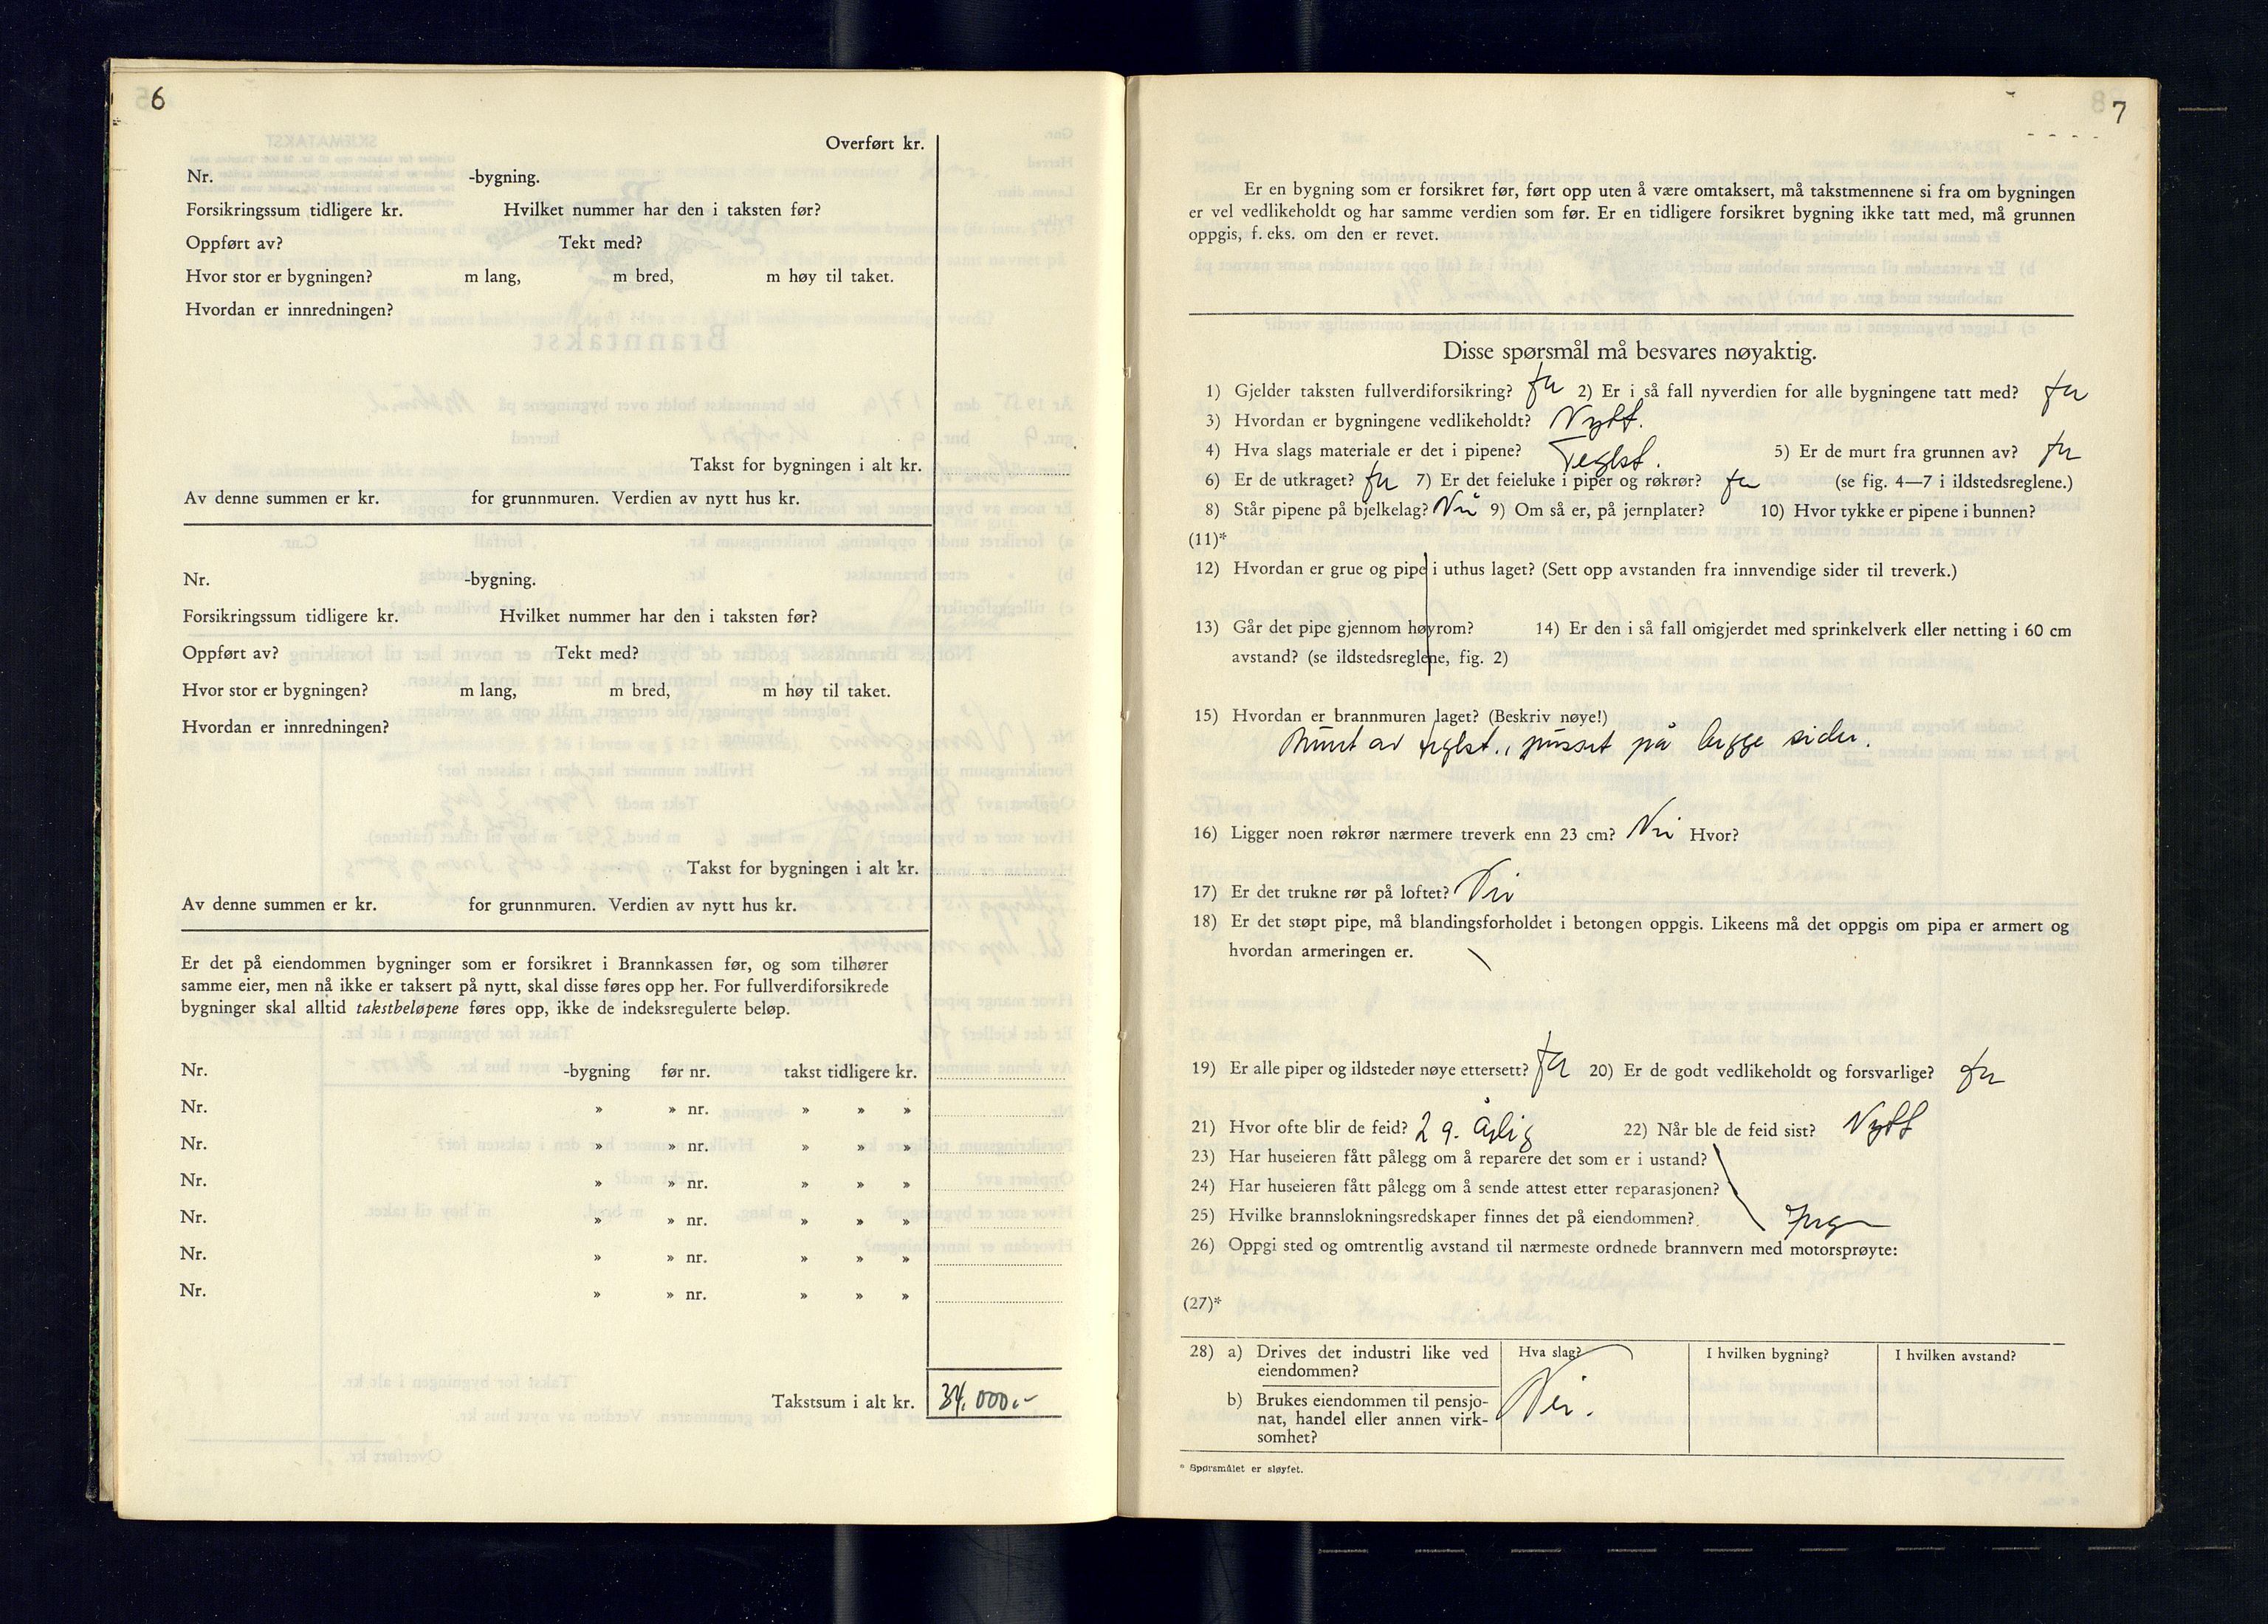 6
Overført kr.
Nr. -bygning.
Forsikringssum tidligere kr. Hvilket nummer har den i taksten før?
Oppført av? Tekt med?
Hvor stor er bygningen? m lang, m bred, m høy til taket.
Hvordan er innredningen?
Takst for bygningen i alt kr.
Av denne summen er kr. for grunnmuren. Verdien av nytt hus kr.
Nr. -bygning.
Forsikringssum tidligere kr. Hvilket nummer har den i taksten før?
Oppført av? Tekt med?
Hvor stor er bygningen? m lang, m bred, m høy til taket.
Hvordan er innredningen?
Takst for bygningen i alt kr.
Av denne summen er kr. for grunnmuren. Verdien av nytt hus kr.
Er det på eiendommen bygninger som er forsikret i Brannkassen før, og som tilhører
samme eier, men nå ikke er taksert på nytt, skal disse føres opp her. For fullverdiforsikrede
bygninger skal alltid takstbeløpene føres opp, ikke de indeksregulerte beløp.
Nr. -bygning før nr. takst tidligere kr.
Nr. » » nr. » » »
Nr. » » nr. » » »
Nr. » » nr. » » »
Nr. » » nr. » » »
Nr. » » nr. » » »
Nr. » » nr. » » »
Takstsum i alt kr. 34.000.-
7
Er en bygning som er forsikret før, ført opp uten å være omtaksert, må takstmennene si fra om bygningen
er vel vedlikeholdt og har samme verdien som før. Er en tidligere forsikret bygning ikke tatt med, må grunnen
oppgis, f. eks. om den er revet.
Disse spørsmål må besvares nøyaktig.
1) Gjelder taksten fullverdiforsikring? Ja 2) Er i så fall nyverdien for alle bygningene tatt med? Ja
3) Hvordan er bygningene vedlikeholdt? Nytt.
4) Hva slags materiale er det i pipene? Teglst. 5) Er de murt fra grunnen av? Ja
6) Er de utkraget? Ja 7) Er det feieluke i piper og røkrør? Ja (se fig. 4—7 i ildstedsreglene.)
8) Står pipene på bjelkelag? Nei 9) Om så er, på jernplater? 10) Hvor tykke er pipene i bunnen?
(11)*
12) Hvordan er grue og pipe i uthus laget? (Sett opp avstanden fra innvendige sider til treverk.)
13) Går det pipe gjennom høyrom? 14) Er den i så fall omgjerdet med sprinkelverk eller netting i 60 cm
avstand? (se ildstedsreglene, fig. 2)
15) Hvordan er brannmuren laget? (Beskriv nøye!)
Murt av teglst., pusset på begge sider.
16) Ligger noen røkrør nærmere treverk enn 23 cm? Nei Hvor?
17) Er det trukne rør på loftet? Nei
18) Er det støpt pipe, må blandingsforholdet i betongen oppgis. Likeens må det oppgis om pipa er armert og
hvordan armeringen er.
19) Er alle piper og ildsteder nøye ettersett? Ja 20) Er de godt vedlikeholdt og forsvarlige? Ja
21) Hvor ofte blir de feid? 2 g. årlig 22) Når ble de feid sist? Nytt
23) Har huseieren fått pålegg om å reparere det som er i ustand?
24) Har huseieren fått pålegg om å sende attest etter reparasjonen?
25) Hvilke brannslokningsredskaper finnes det på eiendommen? Ingen
26) Oppgi sted og omtrentlig avstand til nærmeste ordnede brannvern med motorsprøyte:
(27)*
28) a) Drives det industri like ved Hva slag? I hvilken bygning? I hvilken avstand?
eiendommen?
b) Brukes eiendommen til pensjo- Nei.
nat, handel eller annen virk-
somhet?
* Spørsmålet er sløyfet.